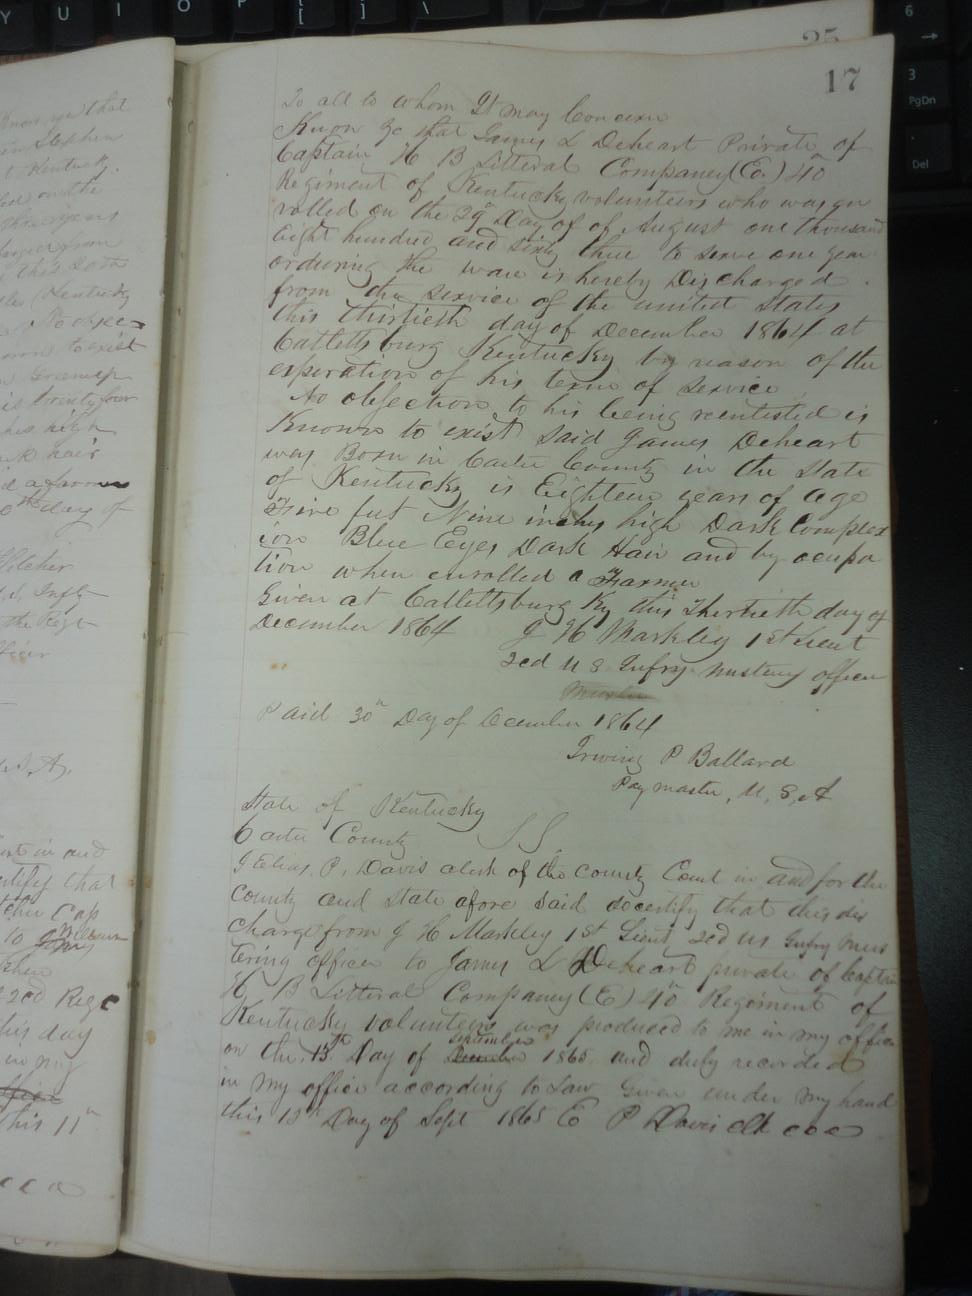 Y U I O P { [ } ] | \
6 →
3 PgDn
. Del
25
17
To all to whom It may Concern
Know Ye that James L Deheart Private of
Captain H B Litteral Company (E.) 40th
Regiment of Kentucky volunteers who was en
rolled on the 29th Day of of August one thousand
Eight hundred and sixty three to serve one year
orduring the ware is hereby Discharged
from the service of the united States
this thirtieth day of December 1864 at
Catlettsburg Kentucky by reason of the
experation of his term of service
No objection to his being reentisted is
Known to exist Said James Deheart
was Born in Carter County in the State
of Kentucky is Eighteen years of age
Five feet Nine inches high Dark Complex
ion Blue Eyes Dark Hair and by ocupa
tion when enrolled a Farmer
Given at Catlettsburg Ky this Thertieth day of
December 1864 J H Markley 1st Lieut
2cd U S Infry mustering officer
Paid 30th Day of December 1864
Irwing P Ballard
Pay master, U, S, A
State of Kentucky
Carter County SS
I Elias. P. Davis clerk of the County Court in and for the
County and State afore said do certify that this dis
charge from J H Markley 1st Lieut 2cd US Infry Mus
tering officer to James L Deheart private of Captain
H B Litteral Company (E) 40th Regiment of
Kentucky volunteers was produced to me in my office
on the 13th Day of September 1865 and duly recorded
in my office according to Law Given under my hand
this 13th Day of Sept 1865 E P Davis clk ccc
Know ye that
in Stephen
Kentucky
on the
three years
from
this 20th
Kentucky
No objec
to exist
Greenup
is twenty four
high
hair
a farmer
day of
Pilcher
U.S. Infty
the Regt
U.S.A.
in and
certify that
Cap
to
2cd Reg
this day
in my
this 11th
ccc